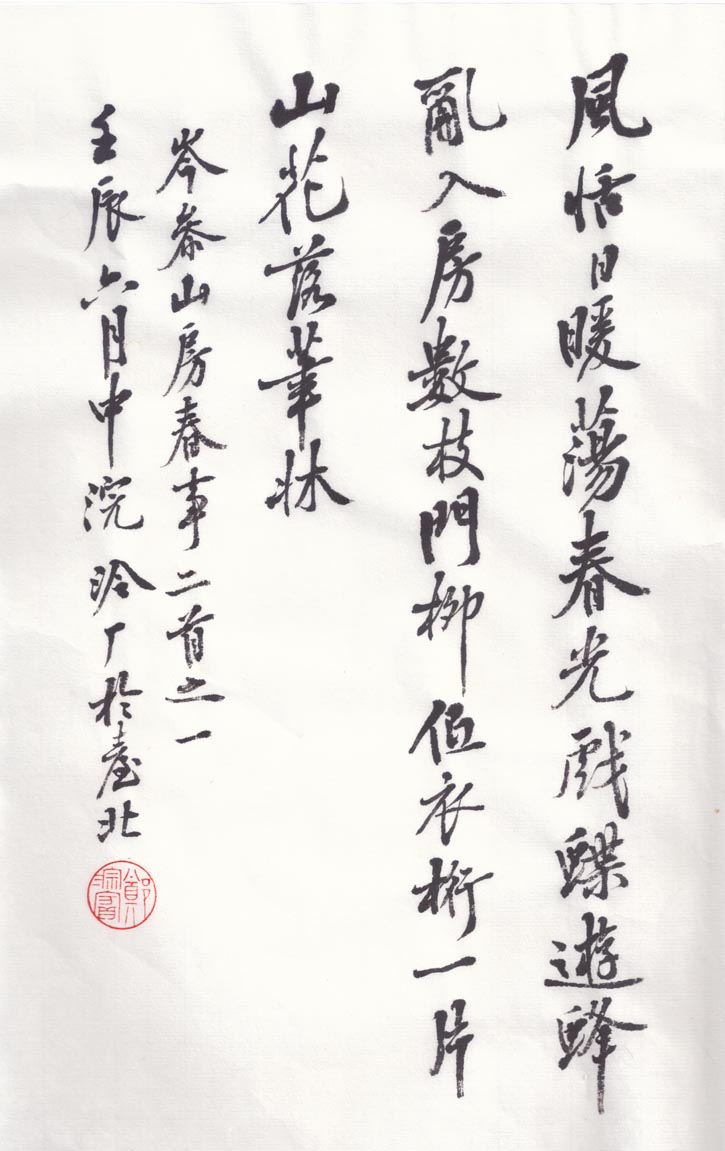 風恬日暖蕩春光戲蝶遊蜂
亂入房數枝門柳低衣桁一片
山花落筆牀
岑參山房春事二首之一
壬辰六月中浣泠厂於臺北